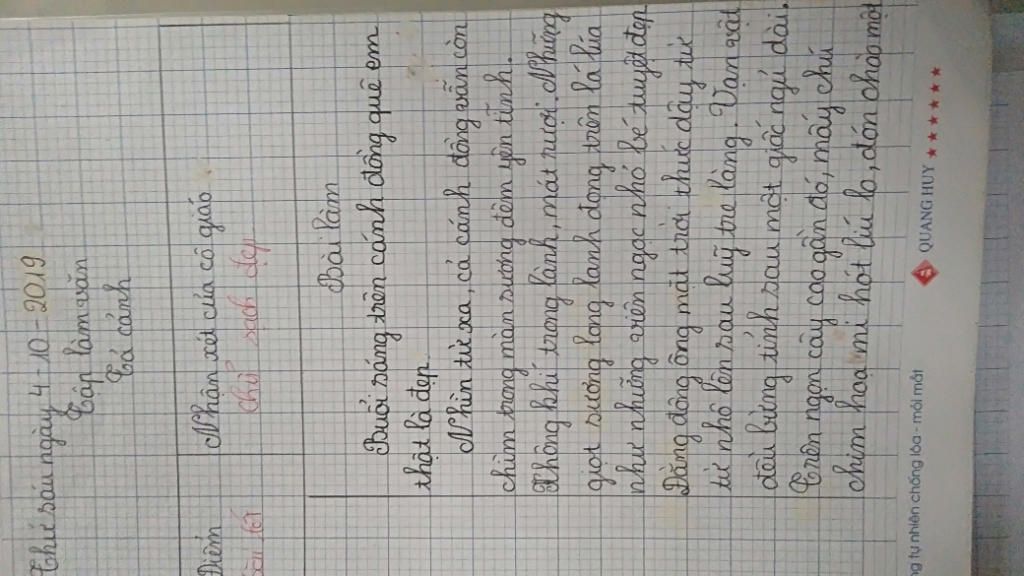 Thứ sáu ngày 4 - 10 - 2019
Tập làm văn
Tả cảnh
Điểm
Nhận xét của cô giáo
chữ sạch đẹp
Bài làm
Buổi sáng trên cánh đồng quê em
thật là đẹp.
Nhìn từ xa, cả cánh đồng vẫn còn
chìm trong màn sương đêm yên tĩnh.
Không khí trong lành, mát rượi. Những
giọt sương long lanh đọng trên lá lúa
như những viên ngọc nhỏ bé tuyệt đẹp
Đằng đông ông mặt trời thức dậy từ
từ nhô lên sau luỹ tre làng. Vạn vật
đều bừng tỉnh sau một giấc ngủ dài.
Trên ngọn cây cao gần đó, mấy chú
chim hoạ mi hót líu lo, đón chào một
ng tự nhiên chống lóa - mỏi mắt
QUANG HUY